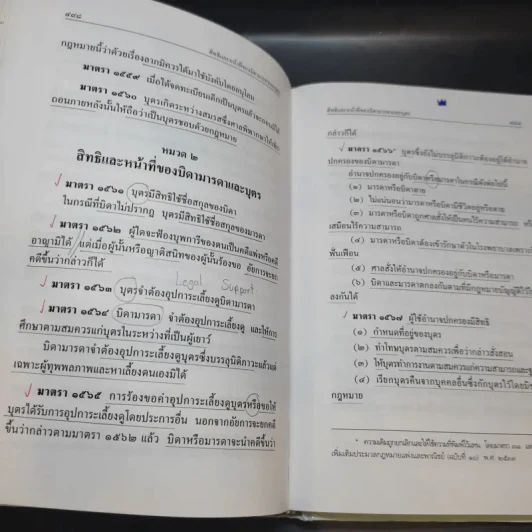 ๔๙๘
สิทธิและหน้าที่ของบิดามารดาและบุตร
กฎหมายนี้ว่าด้วยเรื่องลาภมิควรได้มาใช้บังคับโดยอนุโลม
มาตรา ๑๕๕๙ เมื่อได้จดทะเบียนเด็กเป็นบุตรแล้วจะถอนมิได้
มาตรา ๑๕๖๐ บุตรเกิดระหว่างสมรสซึ่งศาลพิพากษาให้เพิก
ถอนภายหลังนั้นให้ถือว่าเป็นบุตรชอบด้วยกฎหมาย
หมวด ๒
สิทธิและหน้าที่ของบิดามารดาและบุตร
มาตรา ๑๕๖๑ บุตรมีสิทธิใช้ชื่อสกุลของบิดา
ในกรณีที่บิดาไม่ปรากฏ บุตรมีสิทธิใช้ชื่อสกุลของมารดา
มาตรา ๑๕๖๒ ผู้ใดจะฟ้องบุพการีของตนเป็นคดีแพ่งหรือคดี
อาญามิได้ แต่เมื่อผู้นั้นหรือญาติสนิทของผู้นั้นร้องขอ อัยการจะยก
คดีขึ้นว่ากล่าวก็ได้
Legal Support
มาตรา ๑๕๖๓ บุตรจำต้องอุปการะเลี้ยงดูบิดามารดา
มาตรา ๑๕๖๔ บิดามารดา จำต้องอุปการะเลี้ยงดู และให้การ
ศึกษาตามสมควรแก่บุตรในระหว่างที่เป็นผู้เยาว์
บิดามารดาจำต้องอุปการะเลี้ยงดูบุตรซึ่งบรรลุนิติภาวะแล้วแต่
เฉพาะผู้ทุพพลภาพและหาเลี้ยงตนเองมิได้
มาตรา ๑๕๖๕ การร้องขอค่าอุปการะเลี้ยงดูบุตรหรือขอให้
บุตรได้รับการอุปการะเลี้ยงดูโดยประการอื่น นอกจากอัยการจะยกคดี
ขึ้นว่ากล่าวตามมาตรา ๑๕๖๒ แล้ว บิดาหรือมารดาจะนำคดีขึ้นว่า
สิทธิและหน้าที่ของบิดามารดาและบุตร
กล่าวก็ได้
มาตรา ๑๕๖๖* บุตรซึ่งยังไม่บรรลุนิติภาวะต้องอยู่ใต้อำนาจ
ปกครองของบิดามารดา
อำนาจปกครองอยู่กับบิดาหรือมารดาในกรณีดังต่อไปนี้
(๑) มารดาหรือบิดาตาย
(๒) ไม่แน่นอนว่ามารดาหรือบิดามีชีวิตอยู่หรือตาย
(๓) มารดาหรือบิดาถูกศาลสั่งให้เป็นคนไร้ความสามารถ
เสมือนไร้ความสามารถ
(๔) มารดาหรือบิดาต้องเข้ารักษาตัวในโรงพยาบาลเพราะ
ฟั่นเฟือน
(๕) ศาลสั่งให้อำนาจปกครองอยู่กับบิดาหรือมารดา
(๖) บิดาและมารดาตกลงกันตามที่มีกฎหมายบัญญัติไว้
ลงกันได้
มาตรา ๑๕๖๗ ผู้ใช้อำนาจปกครองมีสิทธิ
(๑) กำหนดที่อยู่ของบุตร
(๒) ทำโทษบุตรตามสมควรเพื่อว่ากล่าวสั่งสอน
(๓) ให้บุตรทำการงานตามสมควรแก่ความสามารถและ
(๔) เรียกบุตรคืนจากบุคคลอื่นซึ่งกักบุตรไว้โดยมิ
กฎหมาย
* ความเดิมถูกยกเลิกและให้ใช้ความที่พิมพ์ไว้แทน โดยมาตรา
เพิ่มเติมประมวลกฎหมายแพ่งและพาณิชย์ (ฉบับที่ ๑๐) พ.ศ. ๒๕๓๓